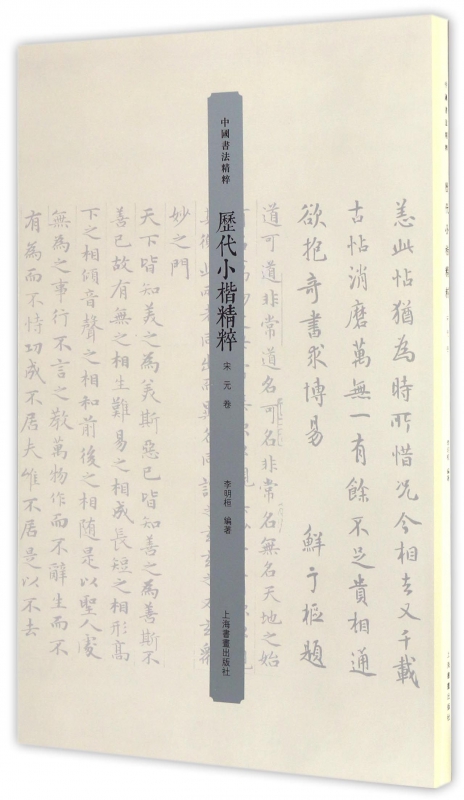 中國書法精粹
歷代小楷精粹
宋 元 卷
李明桓 編著
上海書畫出版社
恙此帖猶為時所惜况今相去又千載
古帖消磨萬無一有餘不足貴相通
欲抱奇書求博易 鮮于樞題
道可道非常道名可名非常名無名天地之始
妙之門
天下皆知美之為美斯惡已皆知善之為善斯不
善已故有無之相生難易之相成長短之相形高
下之相傾音聲之相和前後之相隨是以聖人處
無為之事行不言之教萬物作而不辭生而不
有為而不恃功成不居夫唯不居是以不去
中國書法精粹
歷代小楷精粹
李明桓 編著
上海書畫出版社